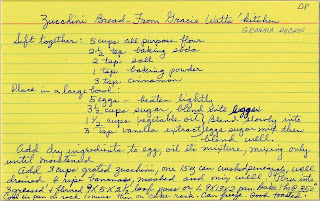 D8
Zucchini Bread - From Gracie Watts' kitchen
GEORGIA DYCHES
Sift together: 5 cups all purpose flour
2 1/2 tsp baking soda
2 tsp salt
1 tsp baking powder
3 tsp cinnamon
Place in a large bowl:
5 eggs - beaten lightly
3 1/2 cups sugar blend into eggs
1 1/2 cups vegetable oil } blend slowly into
3 tsp vanilla extract } eggs sugar mix then
blend well.
Add dry ingredients to egg, oil etc mixture, mixing only
until moistened
Add 3 cups grated zucchini, one 15 oz can crushed pineapple, well
drained, 4 ripe bananas, mashed and mix well. Pour into
3 greased & floured 9X5X2 1/2 loaf pans or 1, 9X13X2 pan. Bake 1 hr @ 350°
Cool in pan or rack 10 mins then on cake rack. Can freeze. Good toasted!